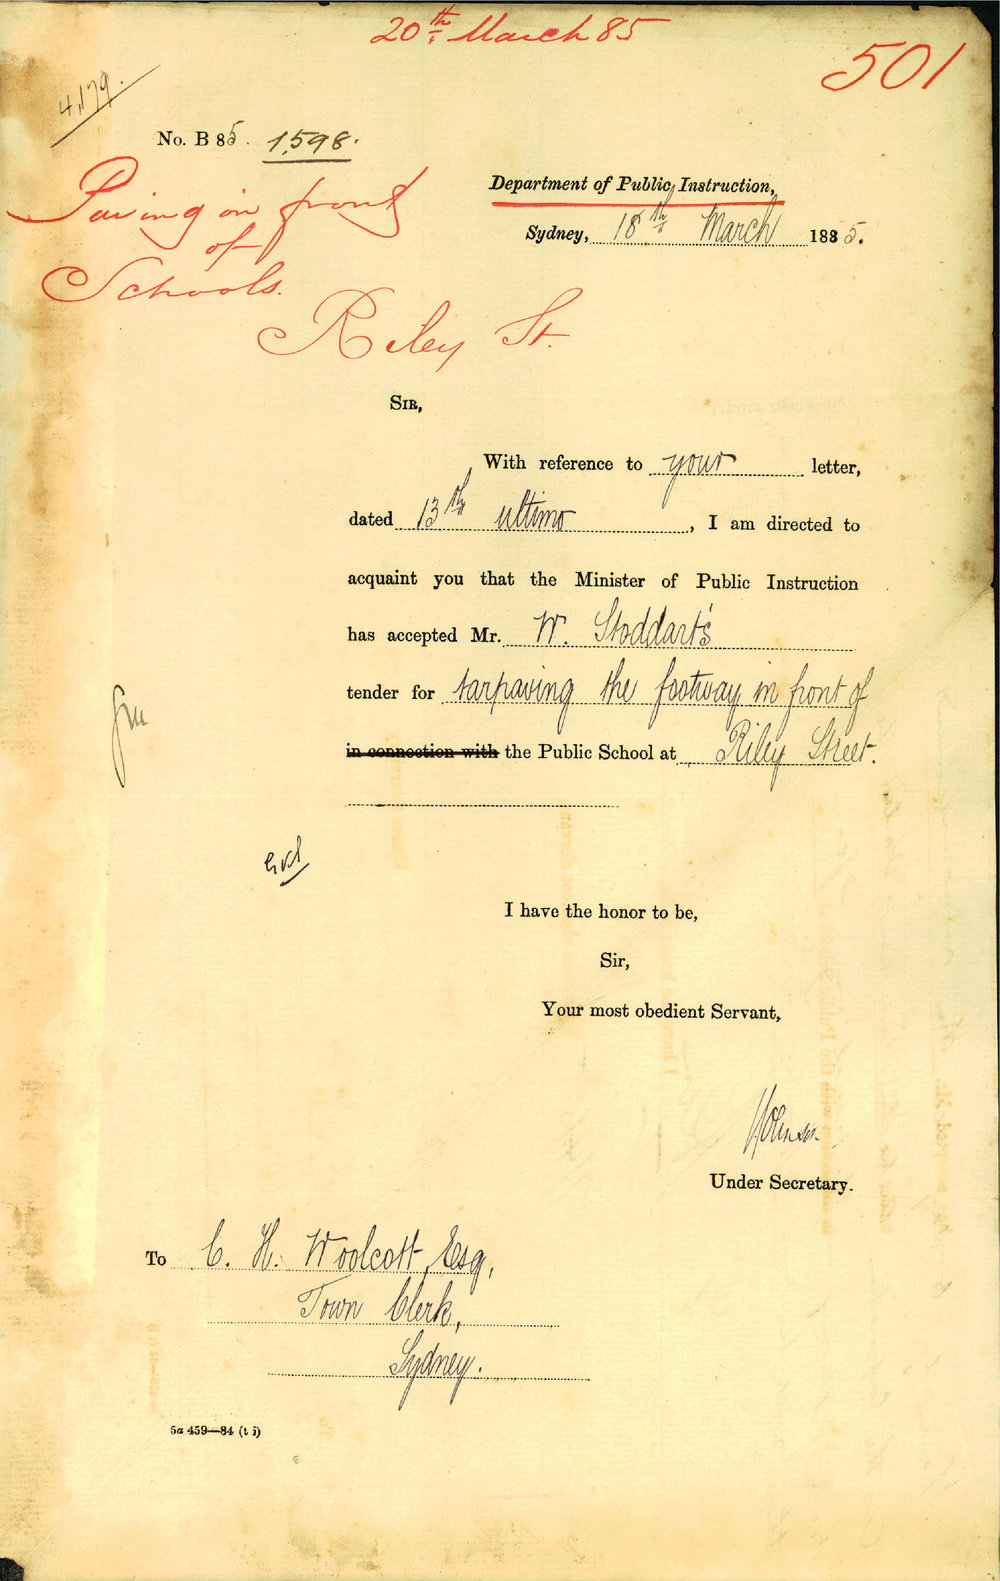 20th March 85
501
4,179.
No. B 85. 1,598.
Paving in front
of
Schools.
Riley St.
Department of Public Instruction,
Sydney, 18th March 1885.
SIR,
With reference to your letter,
dated 13th ultimo, I am directed to
acquaint you that the Minister of Public Instruction
has accepted Mr. W. Stoddart's
tender for tarpaving the footway in front of
in connection with the Public School at Riley Street.
I have the honor to be,
Sir,
Your most obedient Servant,
Under Secretary.
To C. H. Woolcott, Esq,
Town Clerk,
Sydney.
5a 459—84 (t i)